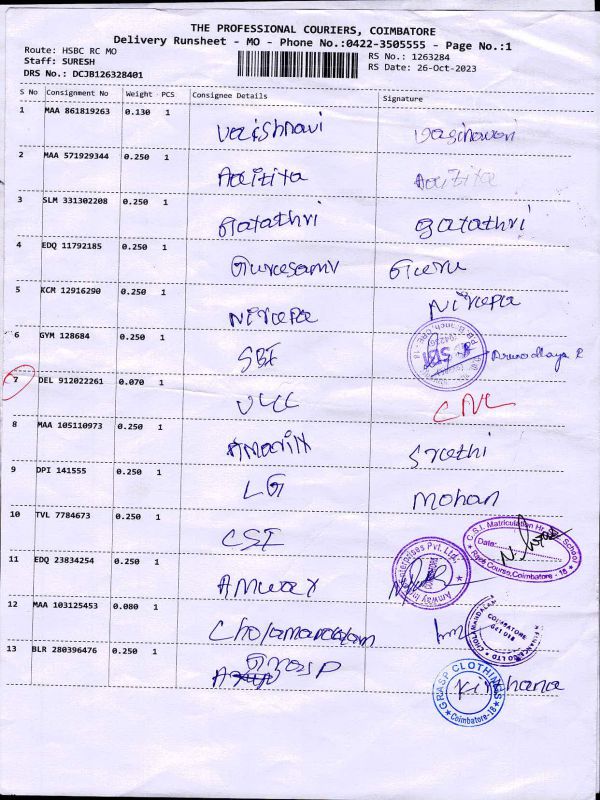 THE PROFESSIONAL COURIERS, COIMBATORE
Delivery Runsheet - MO - Phone No.:0422-3505555 - Page No.:1
Route: HSBC RC MO
Staff: SURESH
DRS No.: DCJB126328401
RS No.: 1263284
RS Date: 26-Oct-2023
S No Consignment No Weight PCS Consignee Details Signature
1 MAA 861819263 0.130 1 Vaishnavi
2 MAA 571929344 0.250 1
3 SLM 331302208 0.250 1 Gayathri gayathri
4 EDQ 11792185 0.250 1 Guru
5 KCM 12916290 0.250 1
6 GYM 128684 0.250 1 SBI
7 DEL 912022261 0.070 1
8 MAA 105110973 0.250 1
9 DPI 141555 0.250 1 LG Mohan
10 TVL 7784673 0.250 1 CSI
C.S.I. Matriculation Hr. Sec. School
Date:
Race Course, Coimbatore - 18
11 EDQ 23834254 0.250 1 Amway
12 MAA 103125453 0.080 1 Cholamandalam
COIMBATORE
641 018
13 BLR 280396476 0.250 1 Grasp Kirthana
GRASP CLOTHINGS
Coimbatore-18